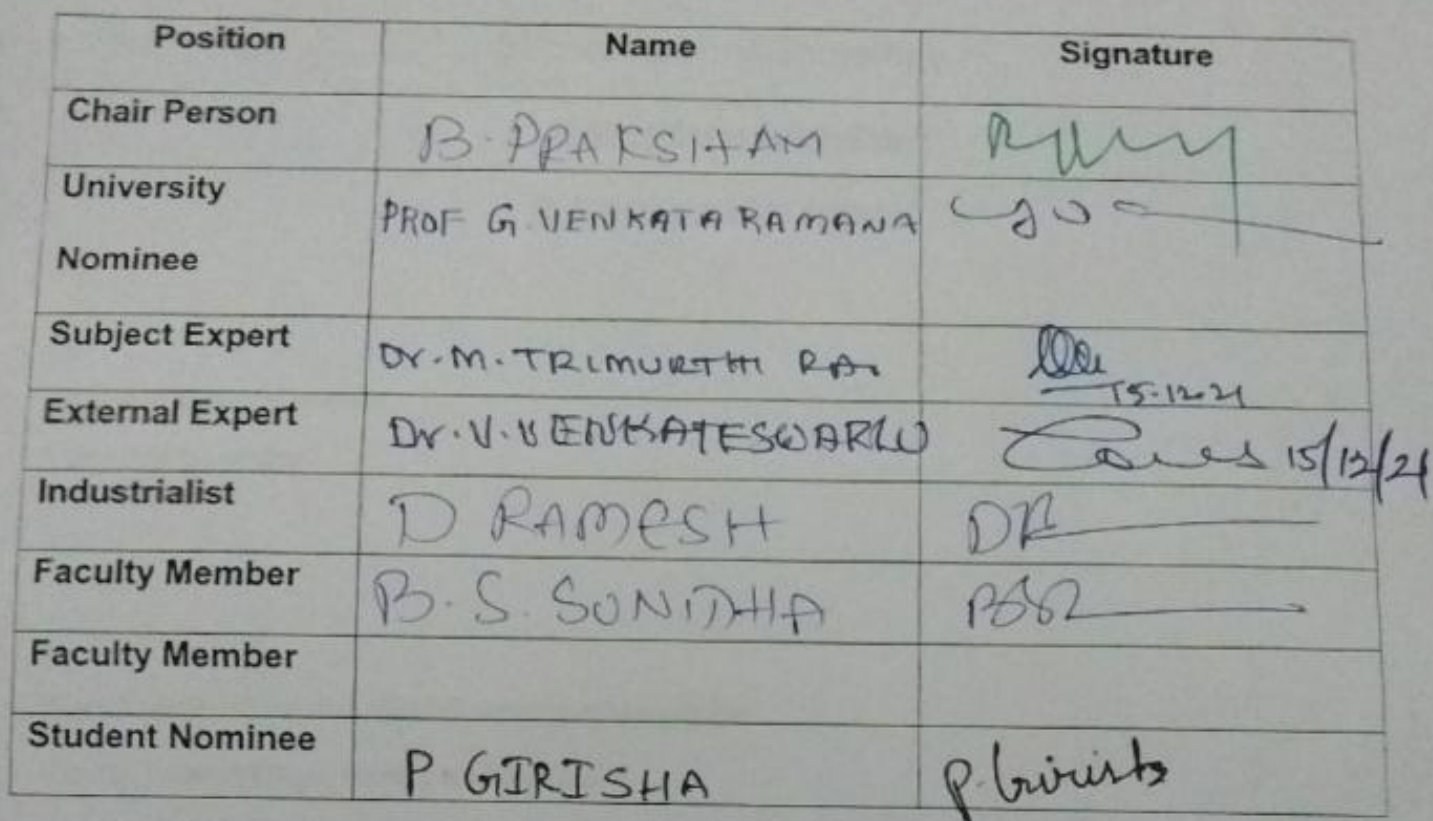 Position Name Signature
Chair Person B. PRAKSHAM
University
PROF G. VENKATA RAMANA
Nominee
Subject Expert Dr. M. TRIMURTHI
15-12-21
External Expert Dr. V. VENKATESWARLU 15/12/21
Industrialist D RAMESH DR
Faculty Member B. S. SUNIDHA
Faculty Member
Student Nominee P GIRISHA P. Girisha